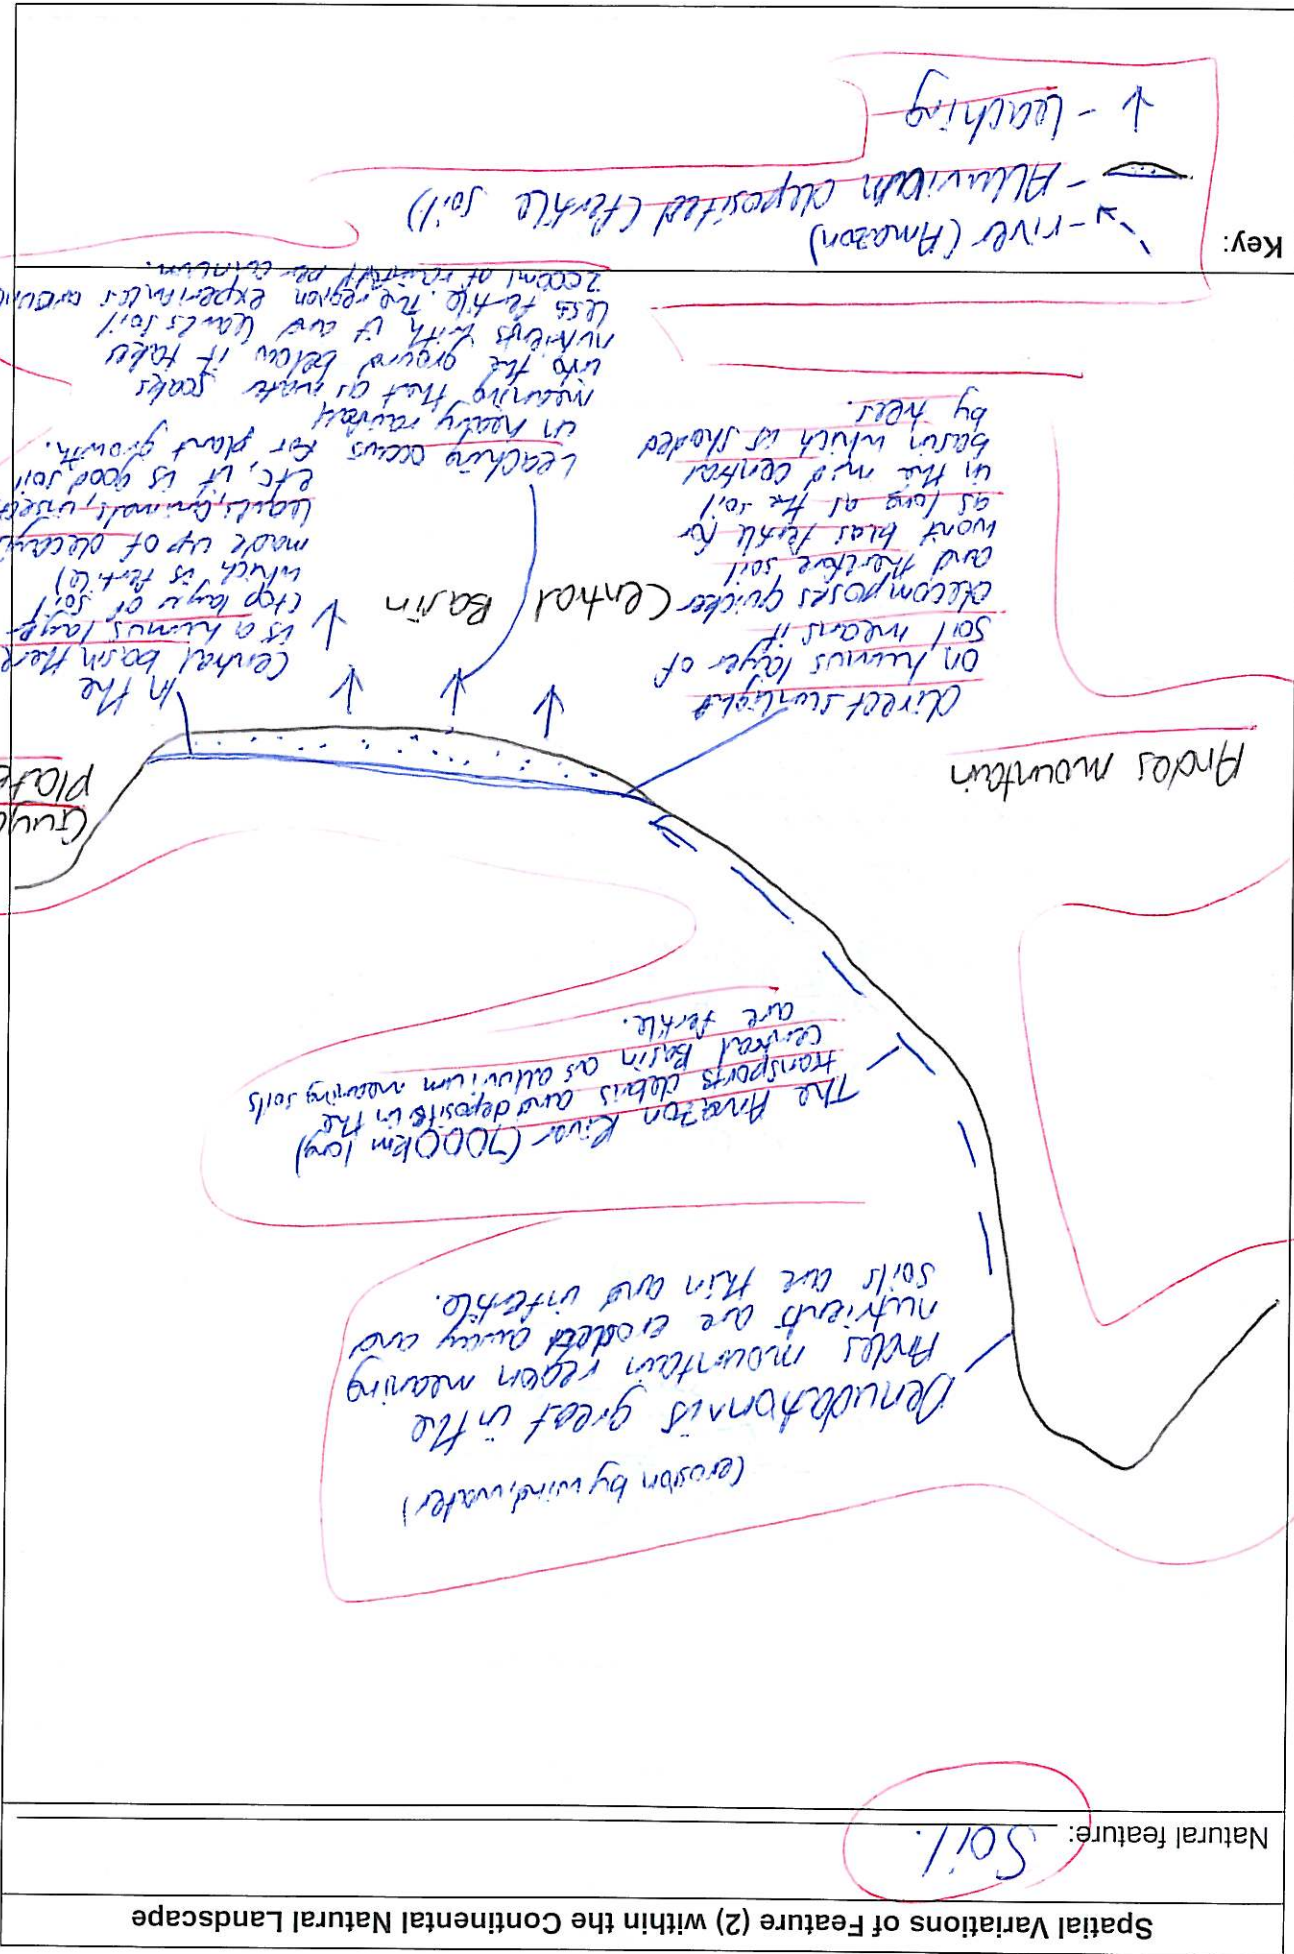 Spatial Variations of Feature (2) within the Continental Natural Landscape
Natural feature: Soil.
(erosion by wind, water)
Denudation is great in the
Andes mountain region meaning
nutrients are eroded away and
soils are thin and infertile.
The Amazon River (7000km long)
transports debris and deposits in the
Central Basin as alluvium meaning soils
are fertile.
Andes mountain
Guya
Plate
direct sunlight
on humus layer of
soil means it
decomposes quicker
and therefore soil
wont be as fertile for
as long as the soil
in the mid central
basin which is shaded
by trees.
Central Basin
In the
central basin there
is a humus layer
(top layer of soil
which is fertile)
made up of decay
leaves, animals, insect
etc, it is good soil
for plant growth.
Leaching occurs
in heavy rainfall
meaning that as water soaks
into the ground below it takes
nutrients with it and leaves soil
less fertile. The region experiences around
2000ml of rainfall per annum.
Key:
- river (Amazon)
- Alluvium deposited (fertile soil)
- Leaching